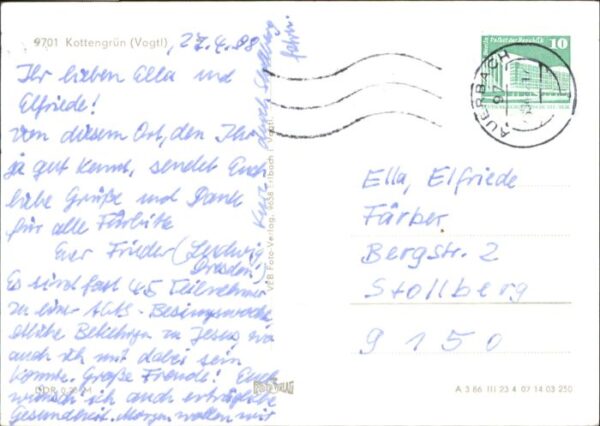 9701 Kottengrün (Vogtl)
, 27.4.88
Ihr lieben Ella und
Elfriede!
Von diesem Ort, den Ihr
ja gut kennt, sendet Euch
liebe Grüße und Dank
für alle Fürbitte
Euer Frieder (Ludwig
Dresden)
Es sind fast 45 Teilnehmer
zu
etliche Bekehrungen zu Jesus wo
auch ich mit dabei sein
konnte. Große Freude! Euch
wünsch ich auch erträgliche
Gesundheit. Morgen wollen wir
kurz durch Stollberg
fahren.
VEB Foto-Verlag, 9658 Erlbach i. Vogtl.
Berlin Palast der Republik
10
AUERBACH
97
Ella, Elfriede
Färber
Bergstr. 2
Stollberg
9150
DDR
FOTO VERLAG
A 3 86 III 23 4 07 14 03 250